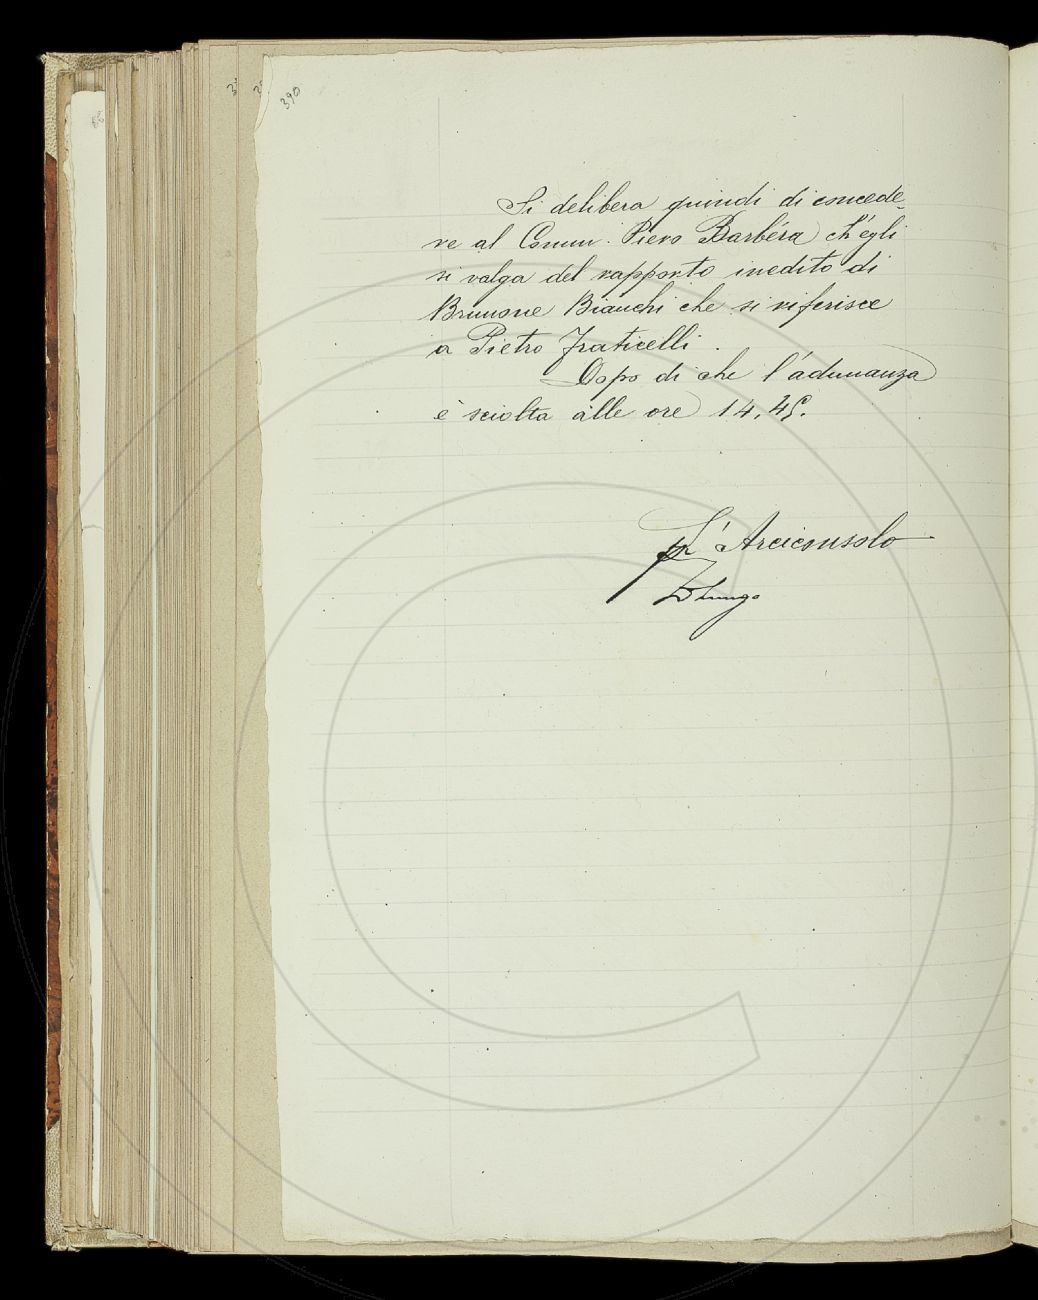 390
Si delibera quindi di concede-
re al Comm. Piero Barbèra ch'egli
si valga del rapporto inedito di
Brunone Bianchi che si riferisce
a Pietro Fraticelli.
Dopo di che l'adunanza
è sciolta alle ore 14,45.
p. L'Arciconsolo